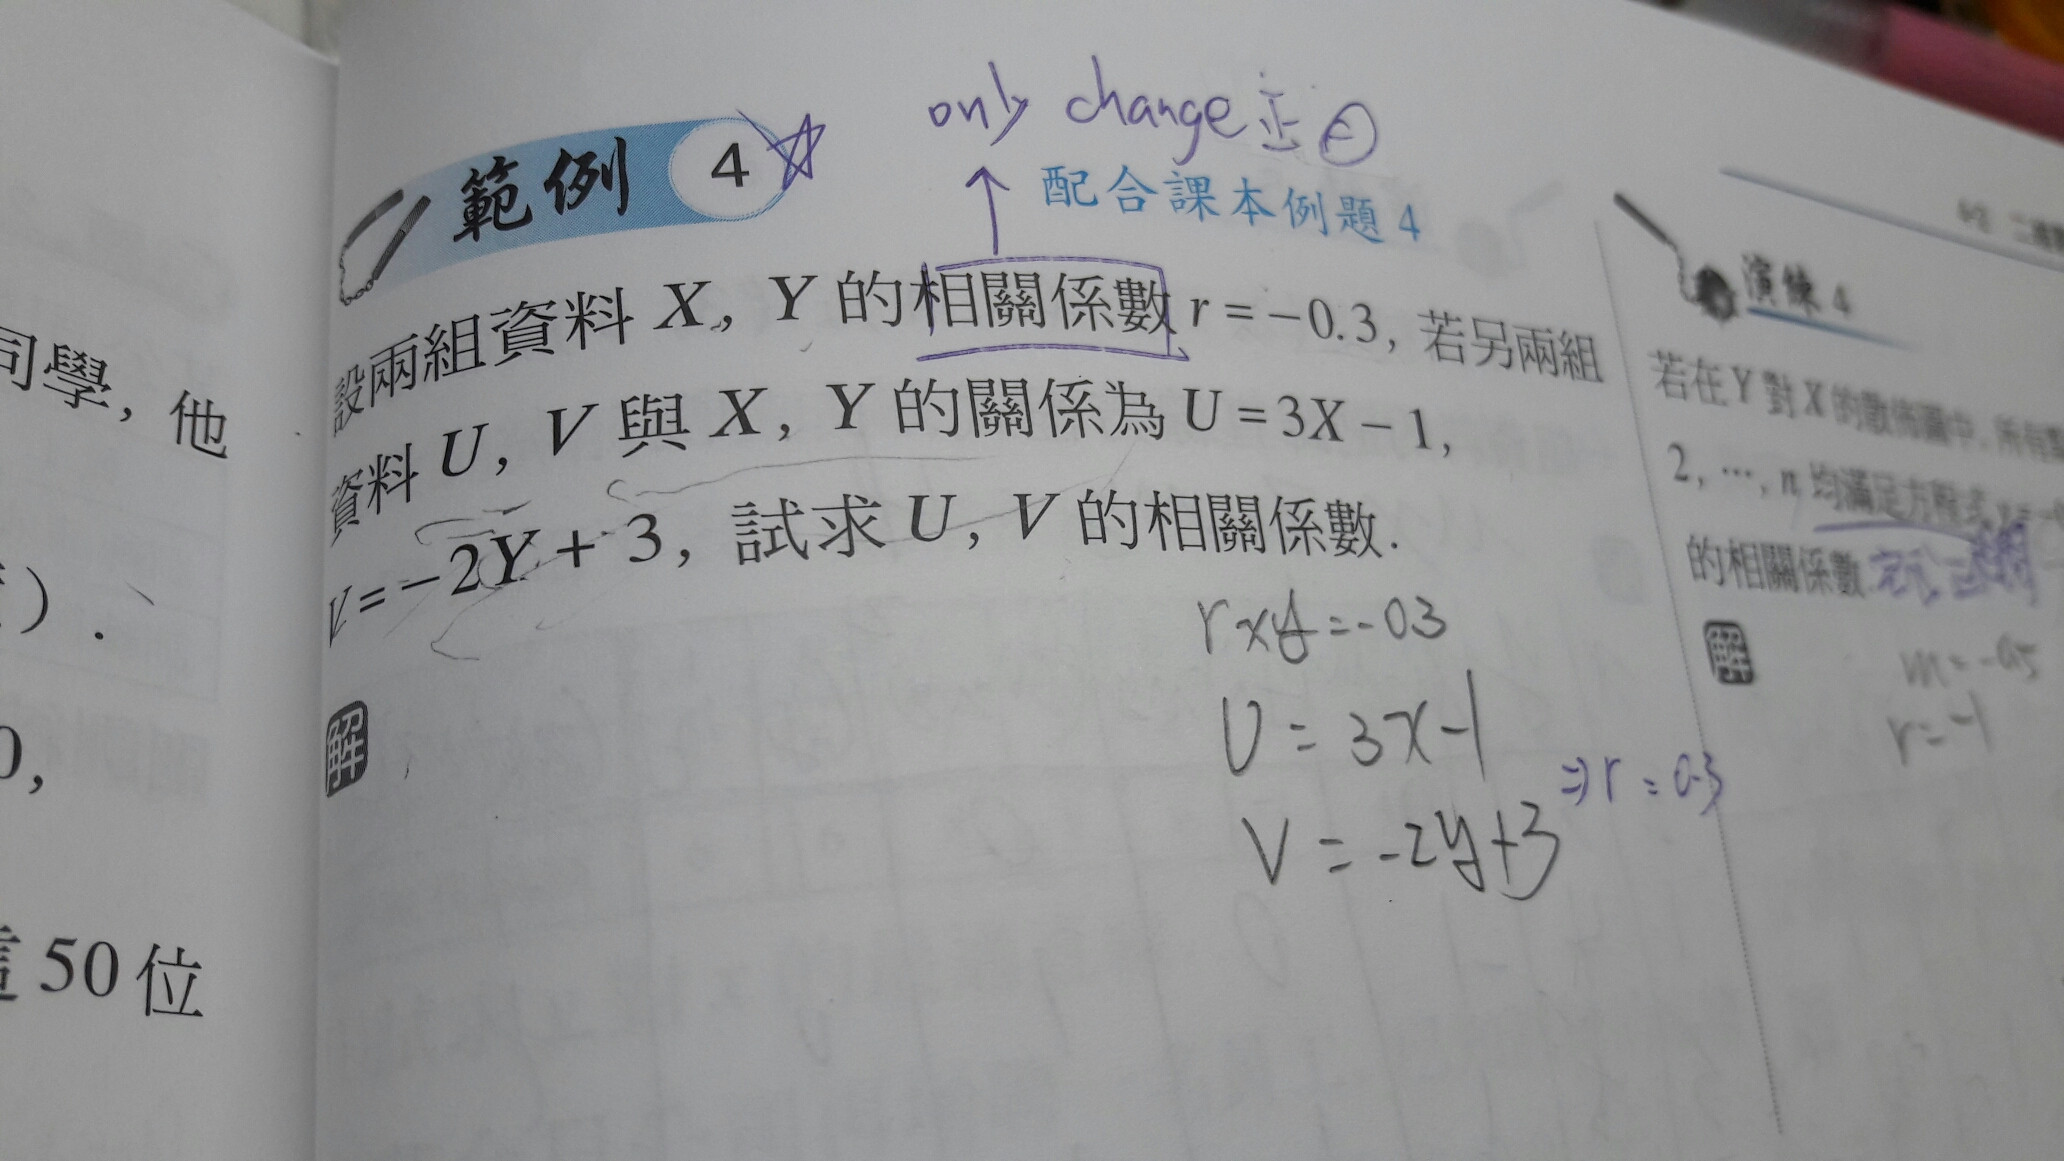 only change 正㊀
範例 4
配合課本例題 4
設兩組資料 X, Y 的相關係數 r = -0.3, 若另兩組
資料 U, V 與 X, Y 的關係為 U = 3X - 1,
V = -2Y + 3, 試求 U, V 的相關係數.
解
rxy = -0.3
U = 3x-1
V = -2y+3
⇒ r = 0.3
同學, 他
) .
0,
這 50 位
演練 4
若在 Y 對 X 的散佈圖中, 所有
2, …, n 均滿足方程式
的相關係數
解
m = -0.5
r = -1